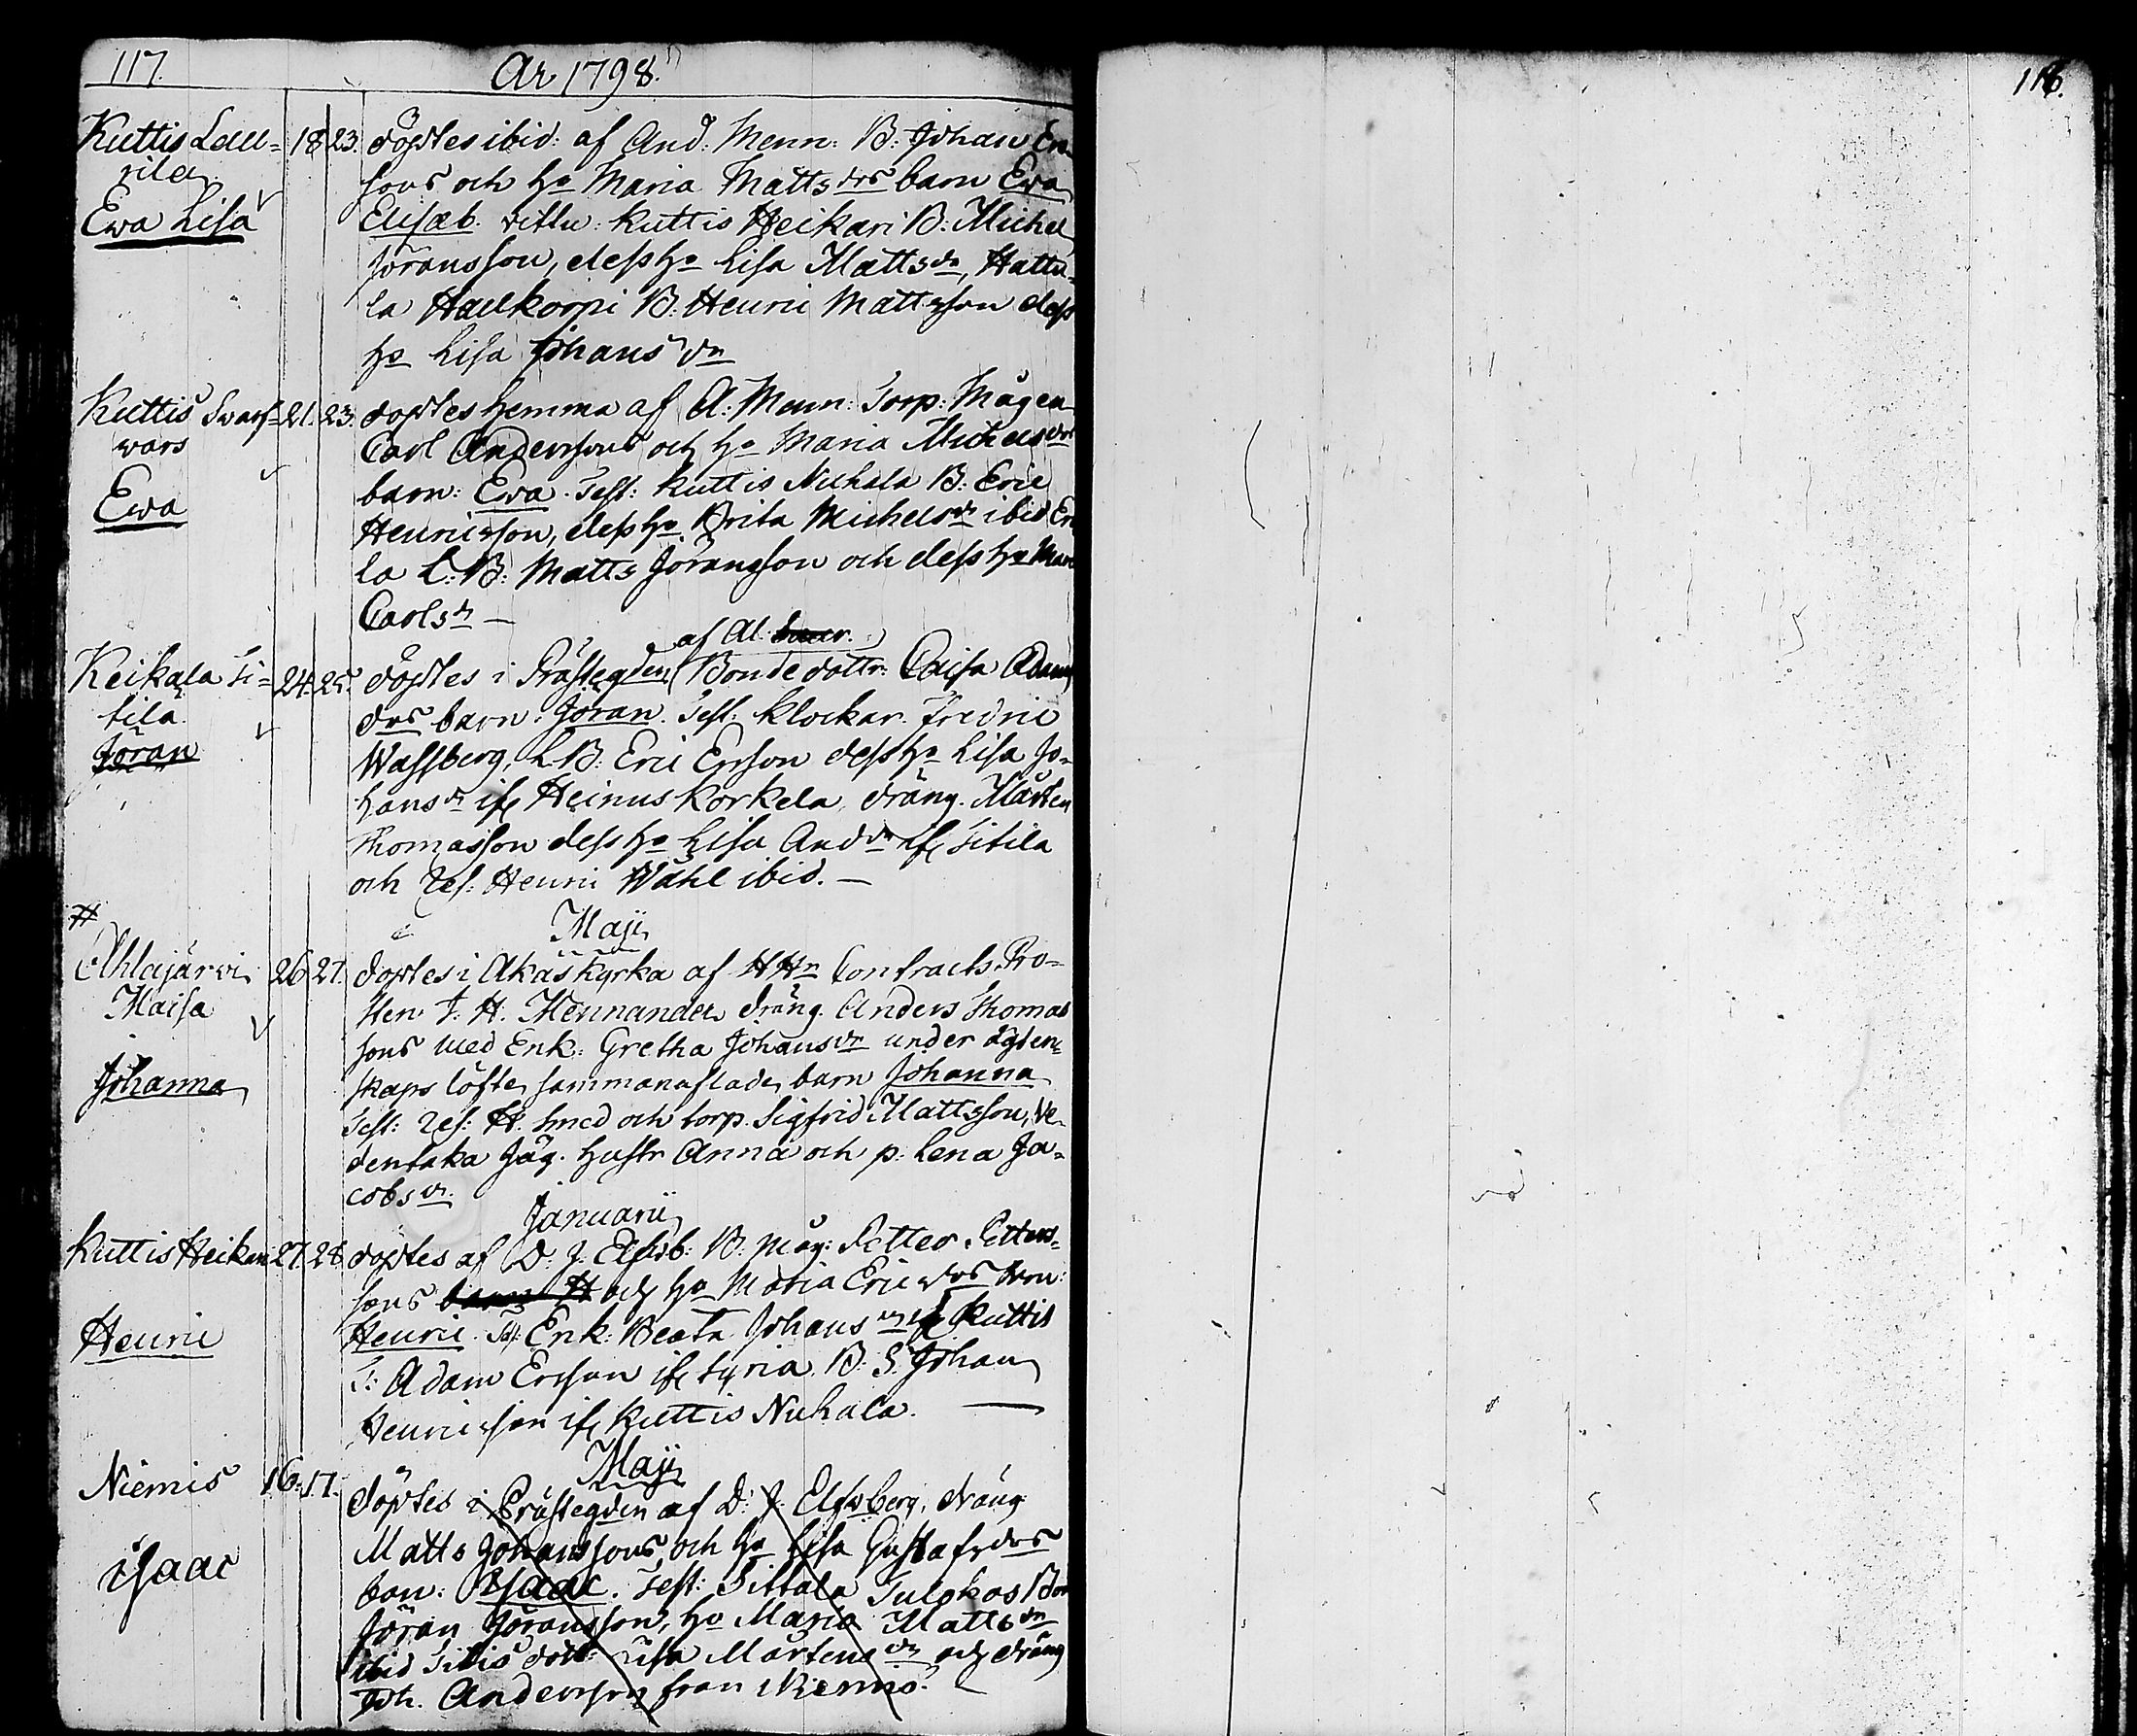 117.
Ar 1798.
116.
Kuttis Lau= 18 23. döptes ibid: af And: Menn: B: Johan Er
rila sons och ho Maria Matts drs barn Eva
Ewa Lisa Elisab. vittn: Kuttis Heikari B: Michel
Jöransson, dess ho Lisa Matts dr, Hattu
la Haukorpi B: Henric Mattsson dess
ho Lisa Johans dr
Kuttis Swarf= 21. 23. döptes hemma af A: Menn: Torp: Mågen
wars Carl Anderssons och ho Maria Michels drs
Ewa barn: Ewa. Test: Kuttis Nuhala B: Eric
Henricsson, dess ho Brita Michels dr ibid
la L: B: Matts Jöransson och dess ho
Carls dr —
af Al:
Keikala Ti= 24. 25. döptes i Prästegden Bonde dottr: Caisa Adams
tila drs barn: Jöran. Test: Klockar. Fredric
Jöran Wassberg, L.B: Eric Ersson dess ho Lisa Jo=
hans dr if Heinus Korkela, dräng. Mårten
Thomasson dess ho Lisa And dr if Titila
och Ref: Henric Wahl ibid. —
Maji
Ahlajärvi 26 27. döptes i Akas Kyrka af HHr Contracts Pro=
Maisa sten J. H. Mennander dräng. Anders Thomas
sons med Enk: Gretha Johans dr under ägten=
Johanna skaps löfte sammanaflade barn Johanna
Test: Ref: H. smed och torp. Sigfrid Mattsson, Ve
dentaka Jäg. hustr Anna och p: Lena Ja=
cobs dr.
Januarii
Kuttis Heikari 27. 28 döptes af D: J. Elfsb: B: Måg: Petter Petters=
sons barn H och ho Maria Erics drs
Henric Henric Test: Enk: Beata Johans dr if Kuttis
T: Adam Ersson if Kyria. B: S: Johan
Henricsson if Kuttis Nuhala. —
Maji
Niemis 16. 17. döptes i Prästegden af D: J: Elfsberg, dräng
Matts Johanssons, och ho Lisa Gustafs drs
isaac ban: Isaac. Test: Sittala Tulokas
Jöran Jöransson, ho Maria Matts dr
ibid Titis dott: Lisa Mårtens dr och dräng
Joh. Andersson från Niemis.